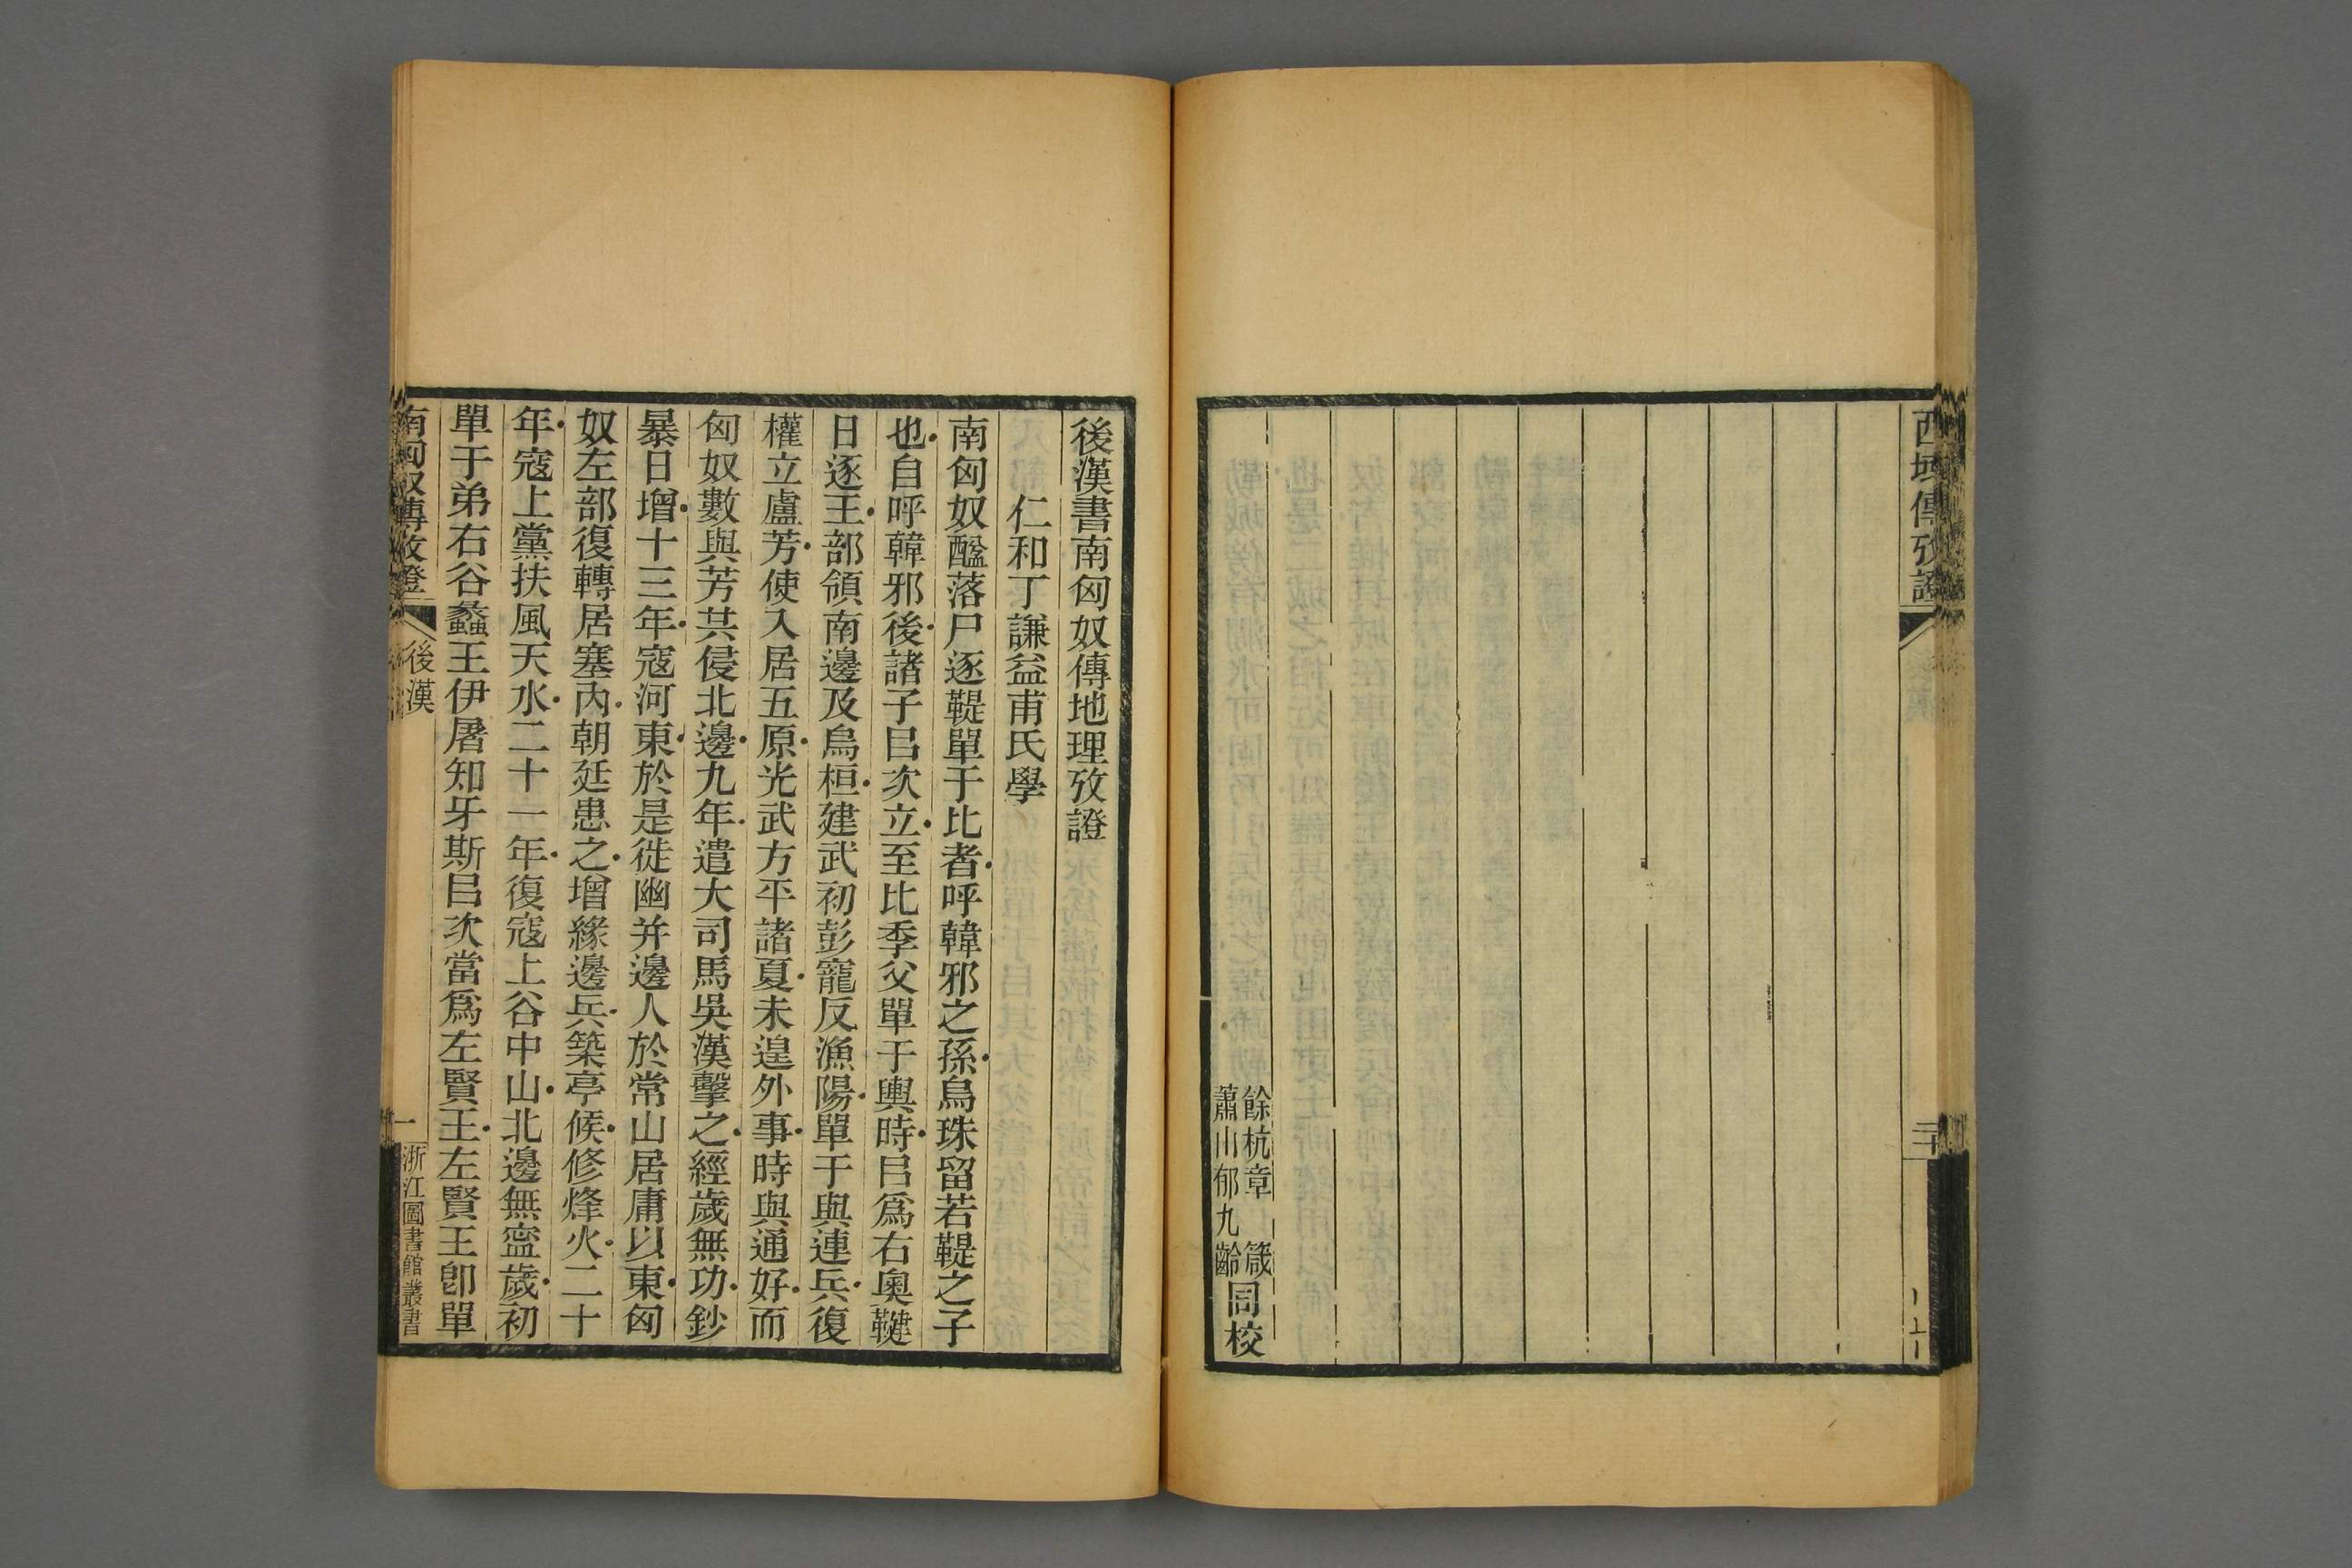 西域傳攷證
二十
餘杭章箴
蕭山郁九齡
同校
後漢書南匈奴傳地理攷證
仁和丁謙益甫氏學
南匈奴醢落尸逐鞮單于比者呼韓邪之孫烏珠留若鞮之子
也自呼韓邪後諸子㠯次立至比季父單于輿時㠯爲右薁鞬
日逐王部領南邊及烏桓建武初彭寵反漁陽單于與連兵復
權立盧芳使入居五原光武方平諸夏未遑外事時與通好而
匈奴數與芳共侵北邊九年遣大司馬吳漢擊之經歲無功鈔
暴日增十三年寇河東於是徙幽并邊人於常山居庸以東匈
奴左部復轉居塞內朝廷患之增緣邊兵築亭候修烽火二十
年寇上黨扶風天水二十一年復寇上谷中山北邊無寍歲初
單于弟右谷蠡王伊屠知牙斯㠯次當爲左賢王左賢王卽單
南匈奴傳攷證
後漢
一
浙江圖書館叢書